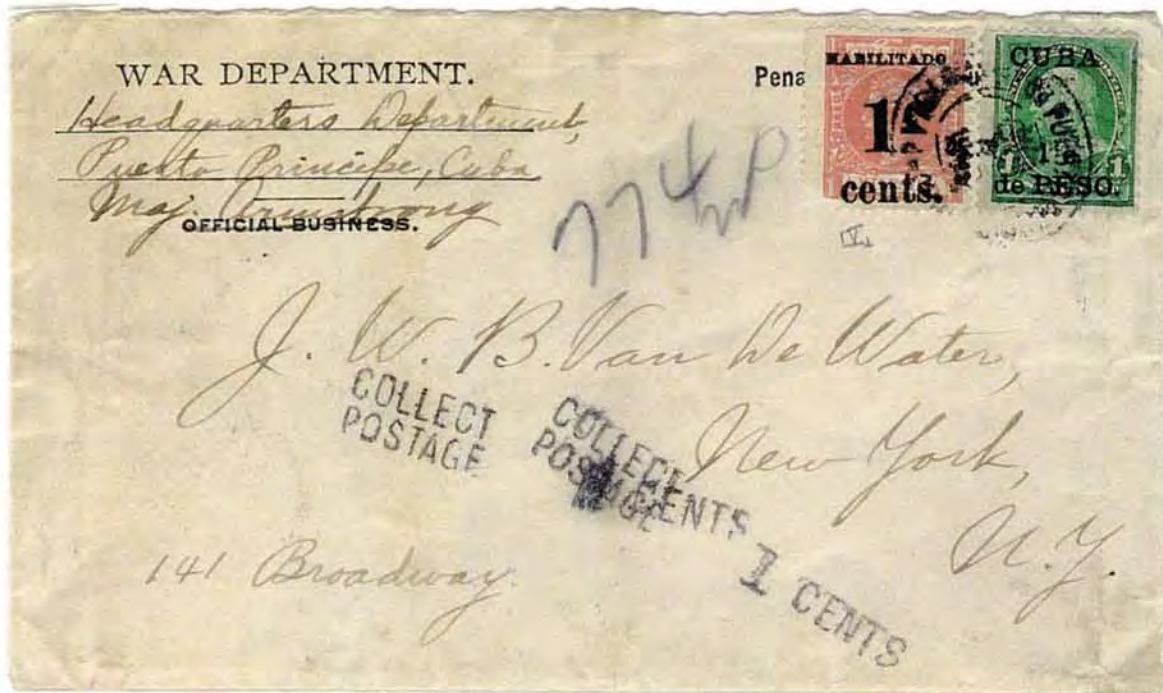 WAR DEPARTMENT.
Headquarters Department,
Puerto Principe, Cuba
Maj. Armstrong
OFFICIAL BUSINESS.
Pena
HABILITADO
1
cents.
CUBA
1 1
de PESO.
774
J. W. B. Van De Water,
New York,
N. Y.
141 Broadway.
COLLECT
POSTAGE
COLLECT
POSTAGE
CENTS
1 CENTS